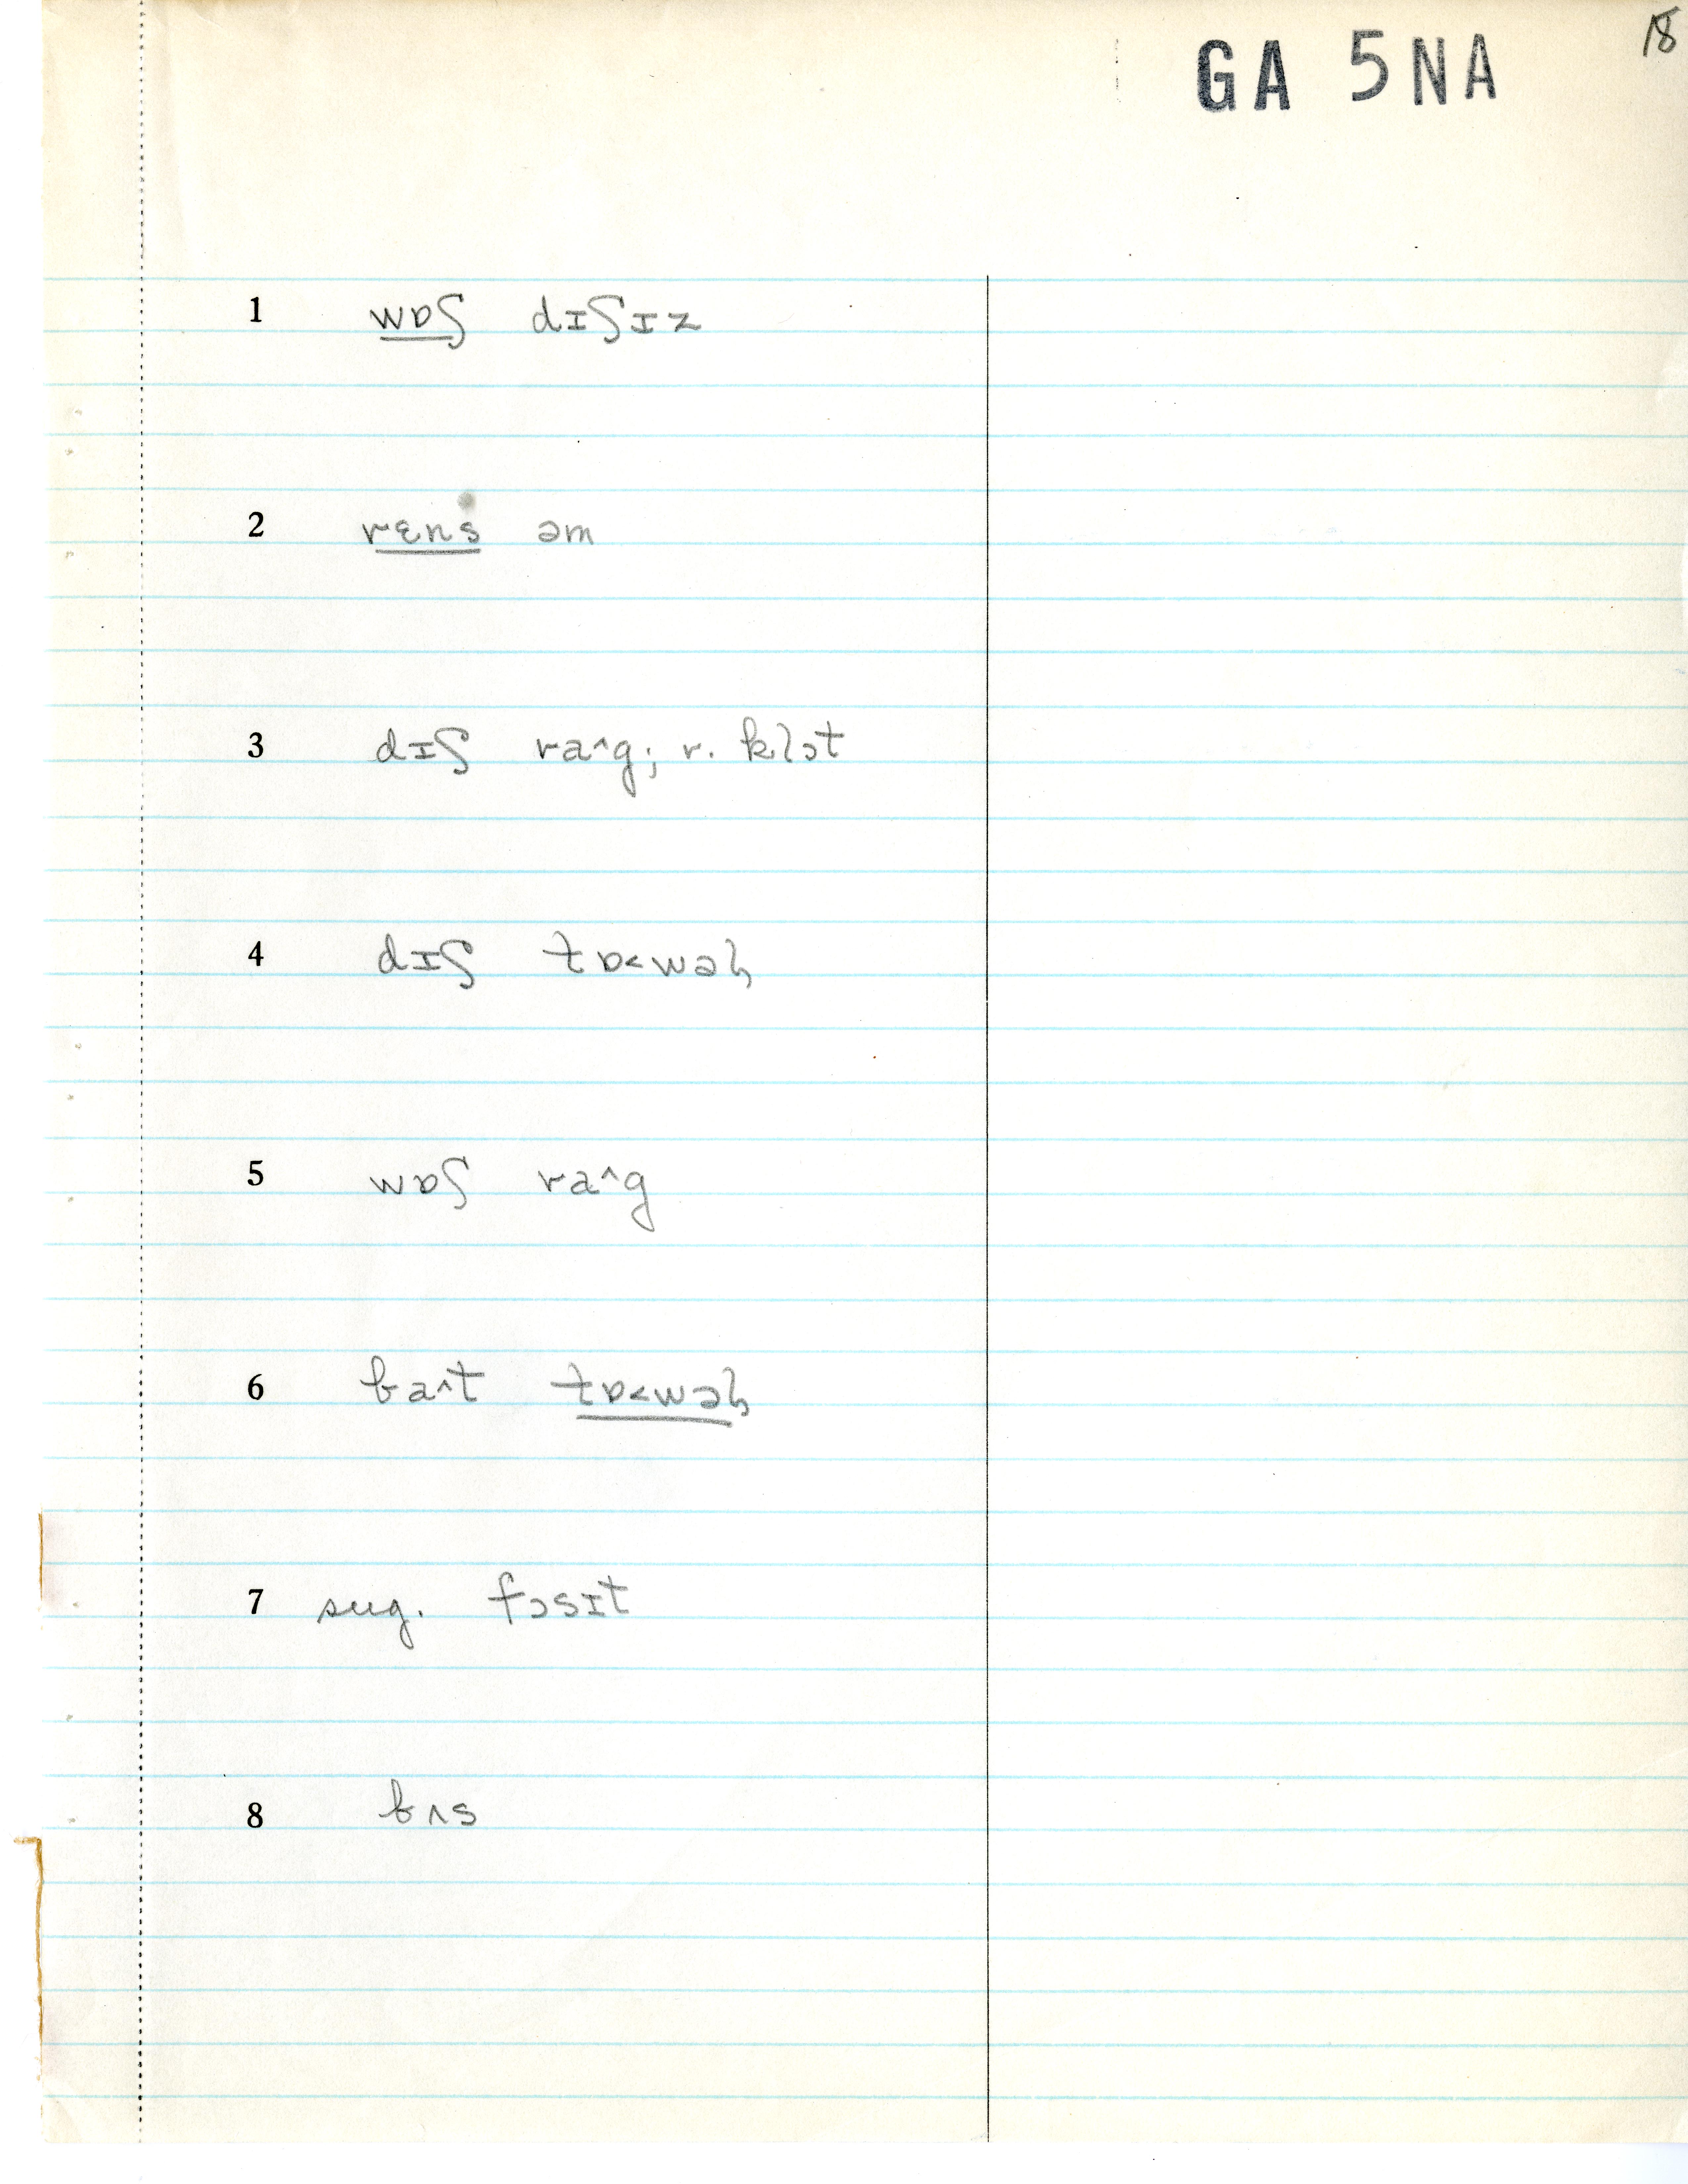 18
GA 5NA
1 wɒʃ dɪʃɪz
2 rɛns əm
3 dɪʃ ra^g; r. klɔt
4 dɪʃ tɒ<wəɫ
5 wɒʃ ra^g
6 ba^t tɒ<wəɫ
7 sug. fɔsɪt
8 bʌs